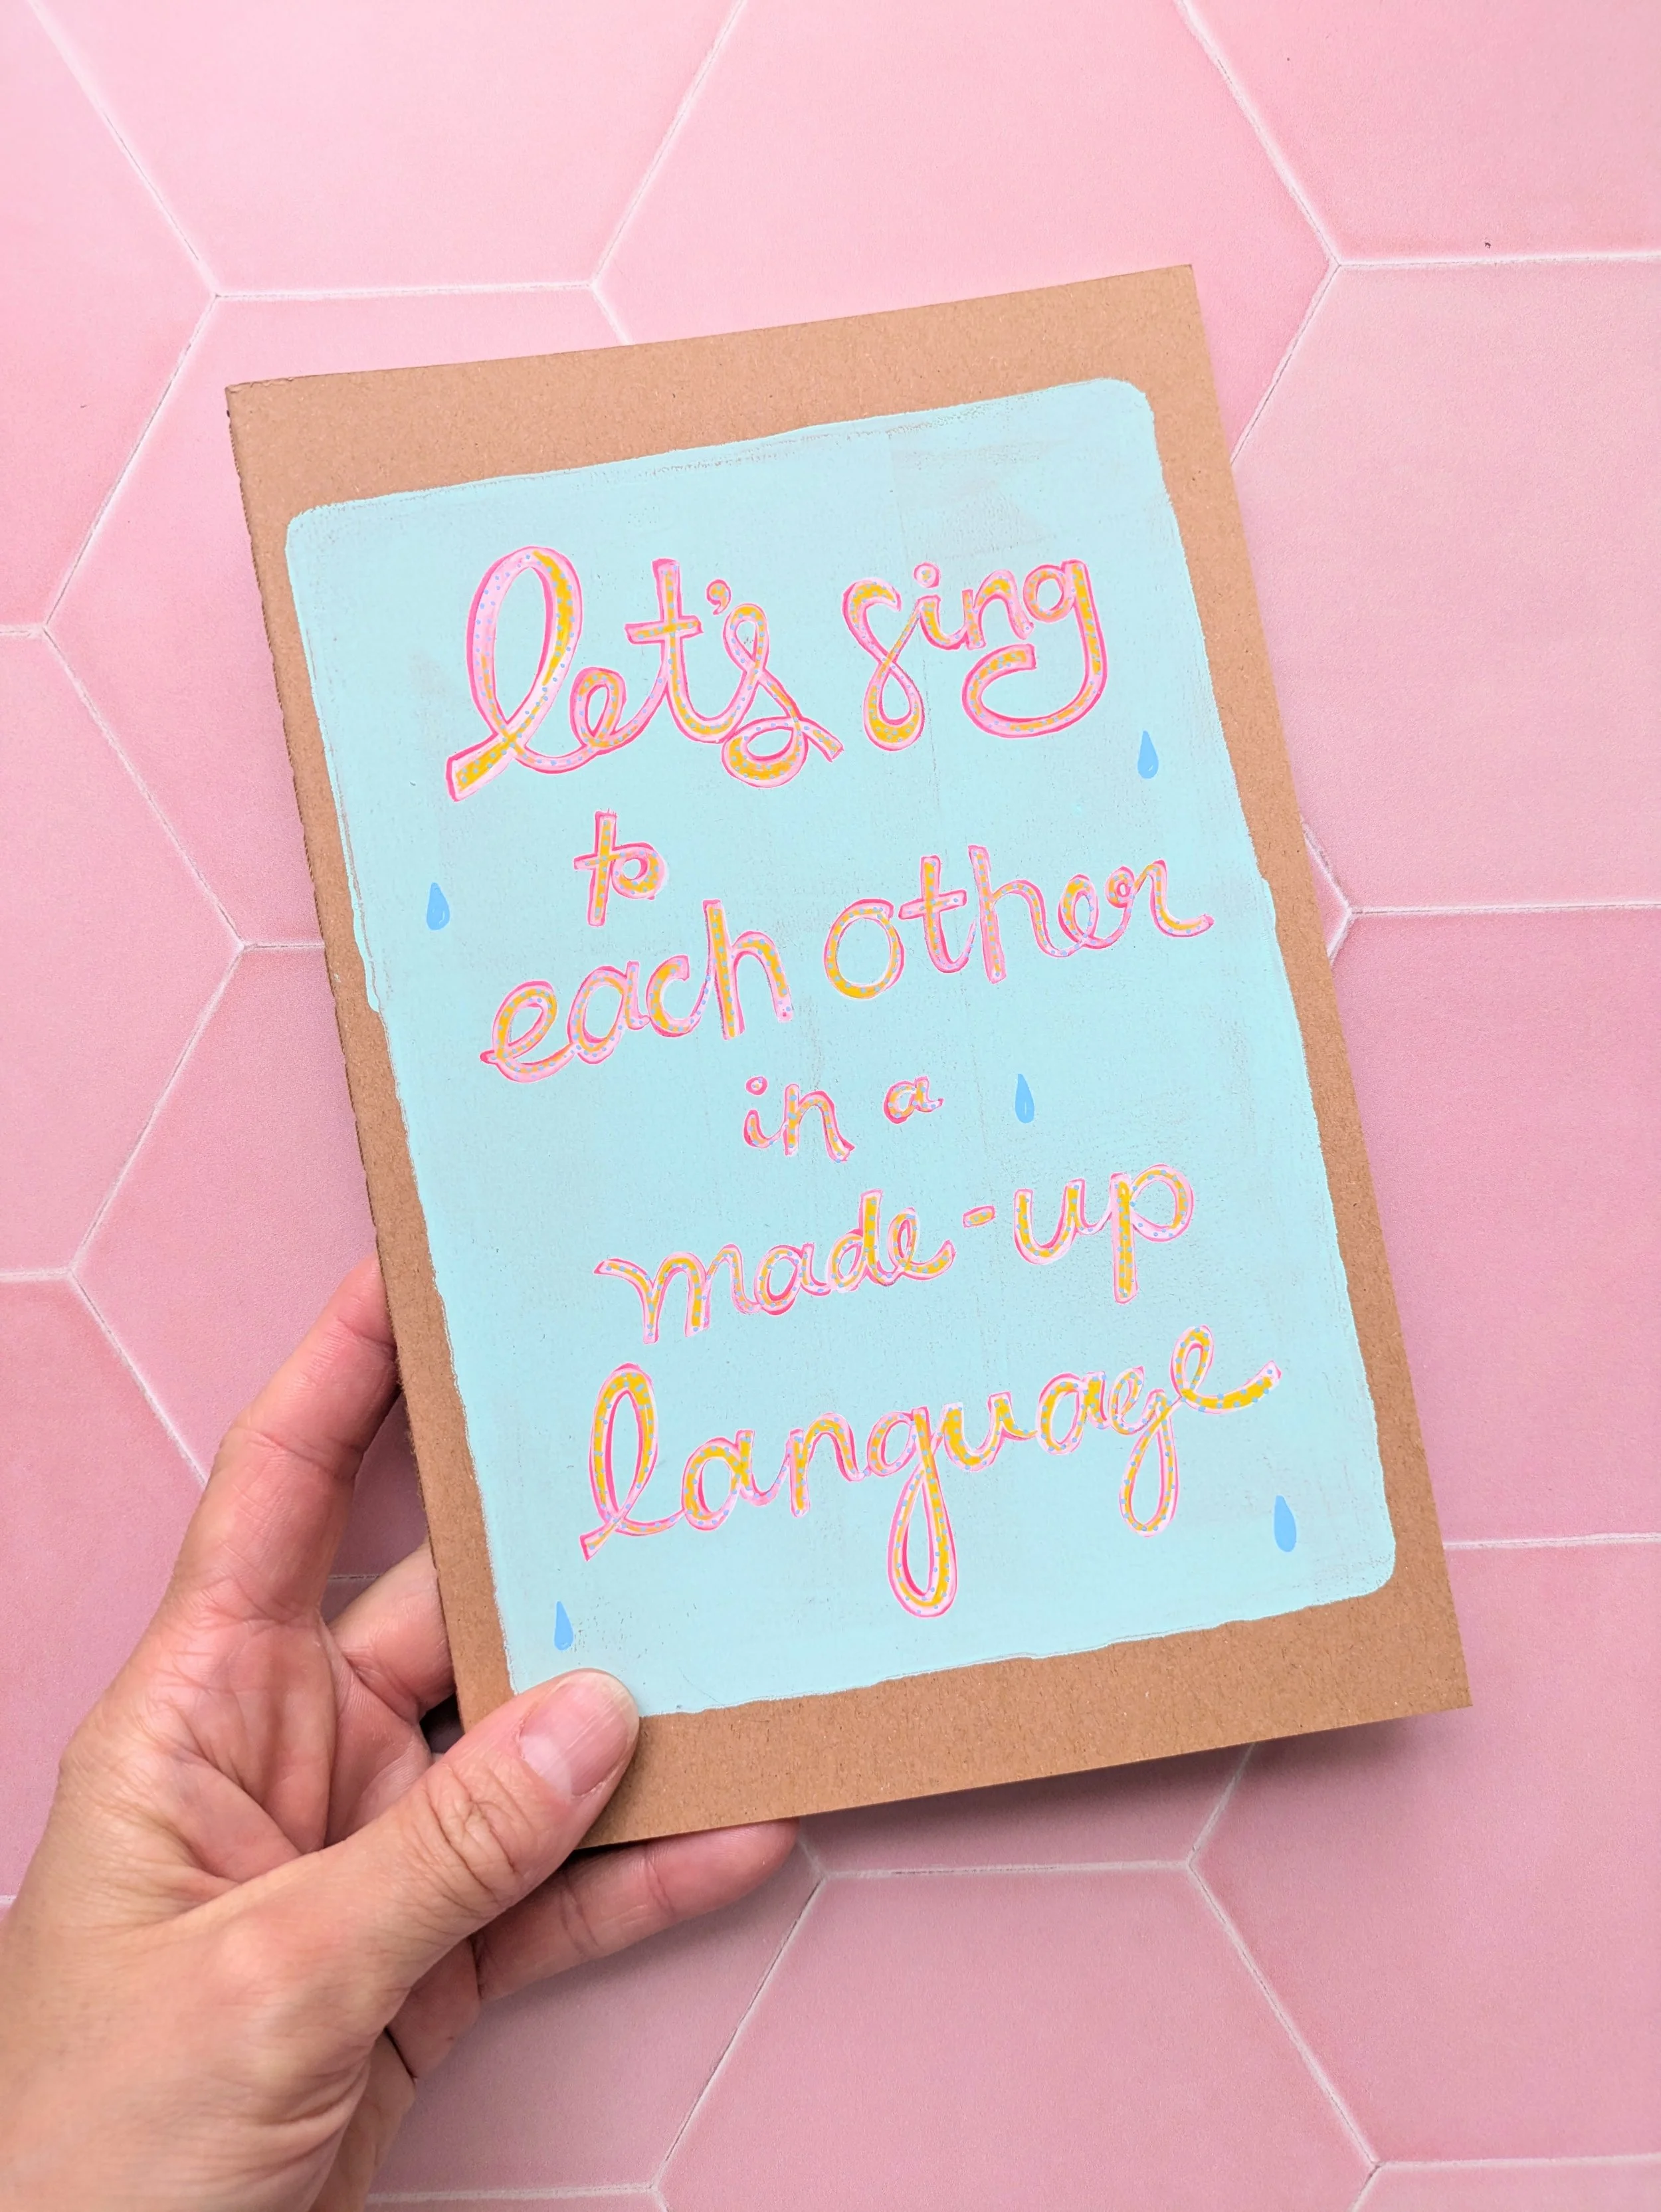 let's sing
to
each other
in a
made-up
language